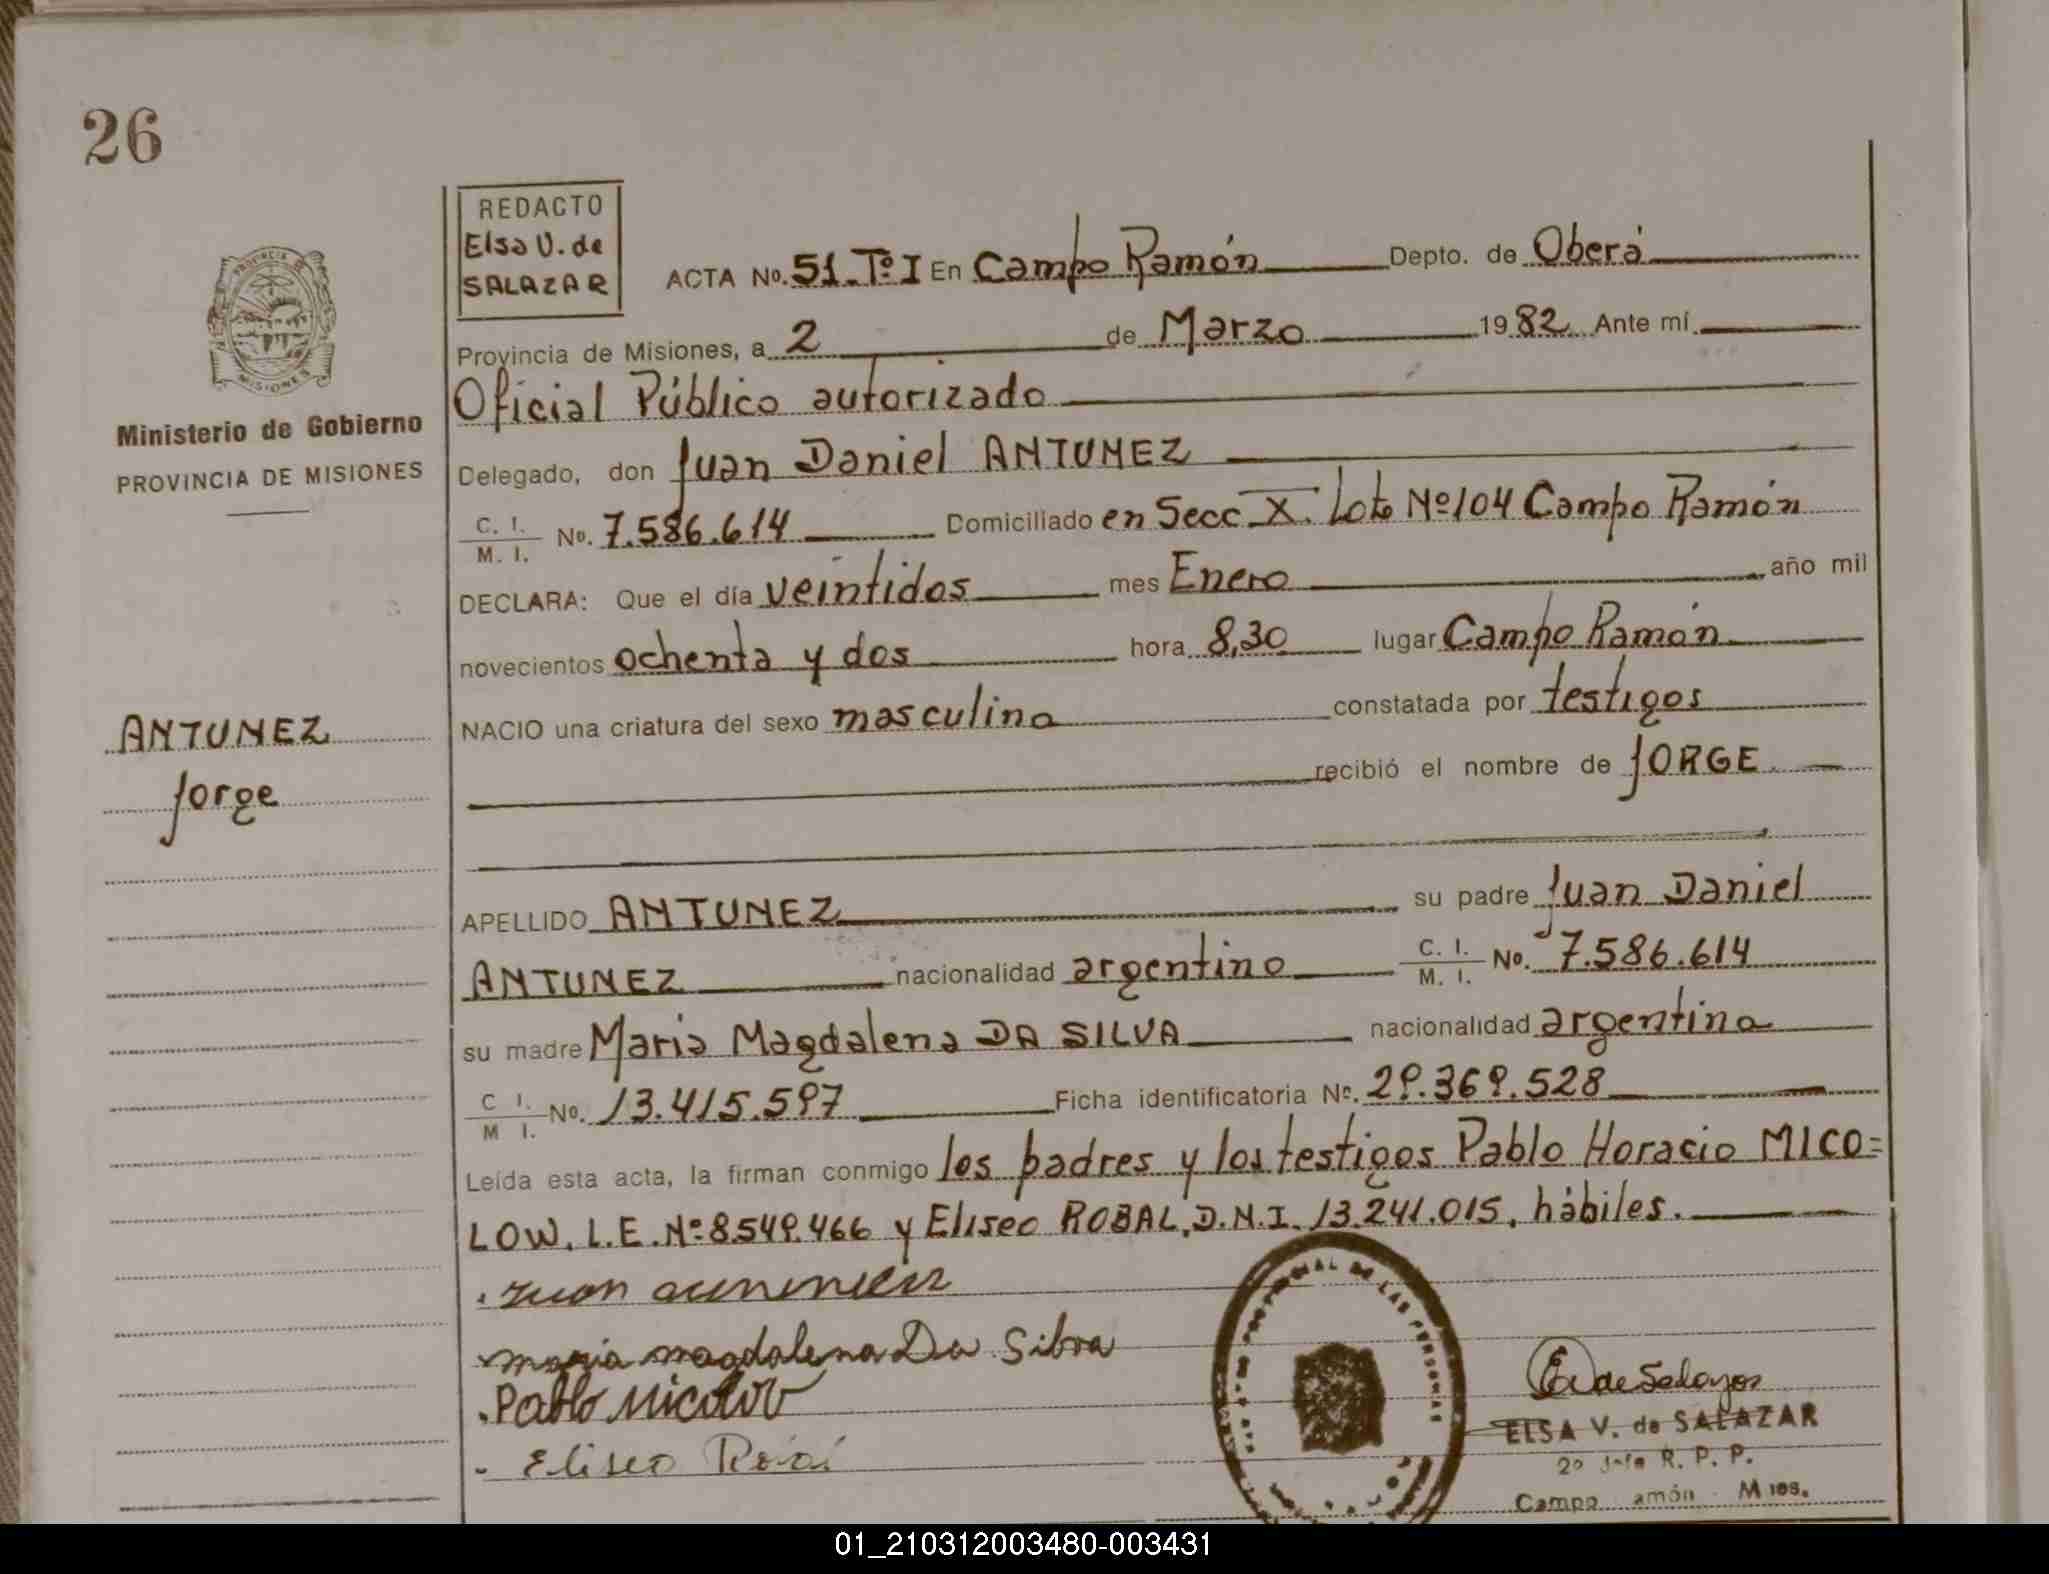 26
REDACTO
Elsa V. de
SALAZAR
ACTA No. 51. Tº I En Campo Ramón Depto. de Oberá
Provincia de Misiones, a 2 de Marzo 1982 Ante mí
Oficial Público autorizado
Ministerio de Gobierno
PROVINCIA DE MISIONES
Delegado, don Juan Daniel ANTUNEZ
C. I.
M. I. No. 7.586.614 Domiciliado en Secc X. Lote Nº 104 Campo Ramón
DECLARA: Que el día veintidos mes Enero año mil
novecientos ochenta y dos hora 8,30 lugar Campo Ramón
NACIO una criatura del sexo masculino constatada por testigos
recibió el nombre de JORGE
ANTUNEZ
Jorge
APELLIDO ANTUNEZ su padre Juan Daniel
ANTUNEZ nacionalidad argentino C. I. M. I. No. 7.586.614
su madre Maria Magdalena DA SILVA nacionalidad argentina
C I. M I. No. 13.415.597 Ficha identificatoria No. 29.369.528
Leída esta acta, la firman conmigo los padres y los testigos Pablo Horacio MICO=
LOW. L.E. Nº 8.549.466 y Eliseo ROBAL, D.N.I. 13.241.015, hábiles.
maria magdalena Da Silva
Pablo Micolow
Eliseo
DE LAS PERSONAS
E V de Salazar
ELSA V. de SALAZAR
2º Jefe R. P. P.
Campo amón Mnes.
PROVINCIA DE
MISIONES
01_210312003480-003431